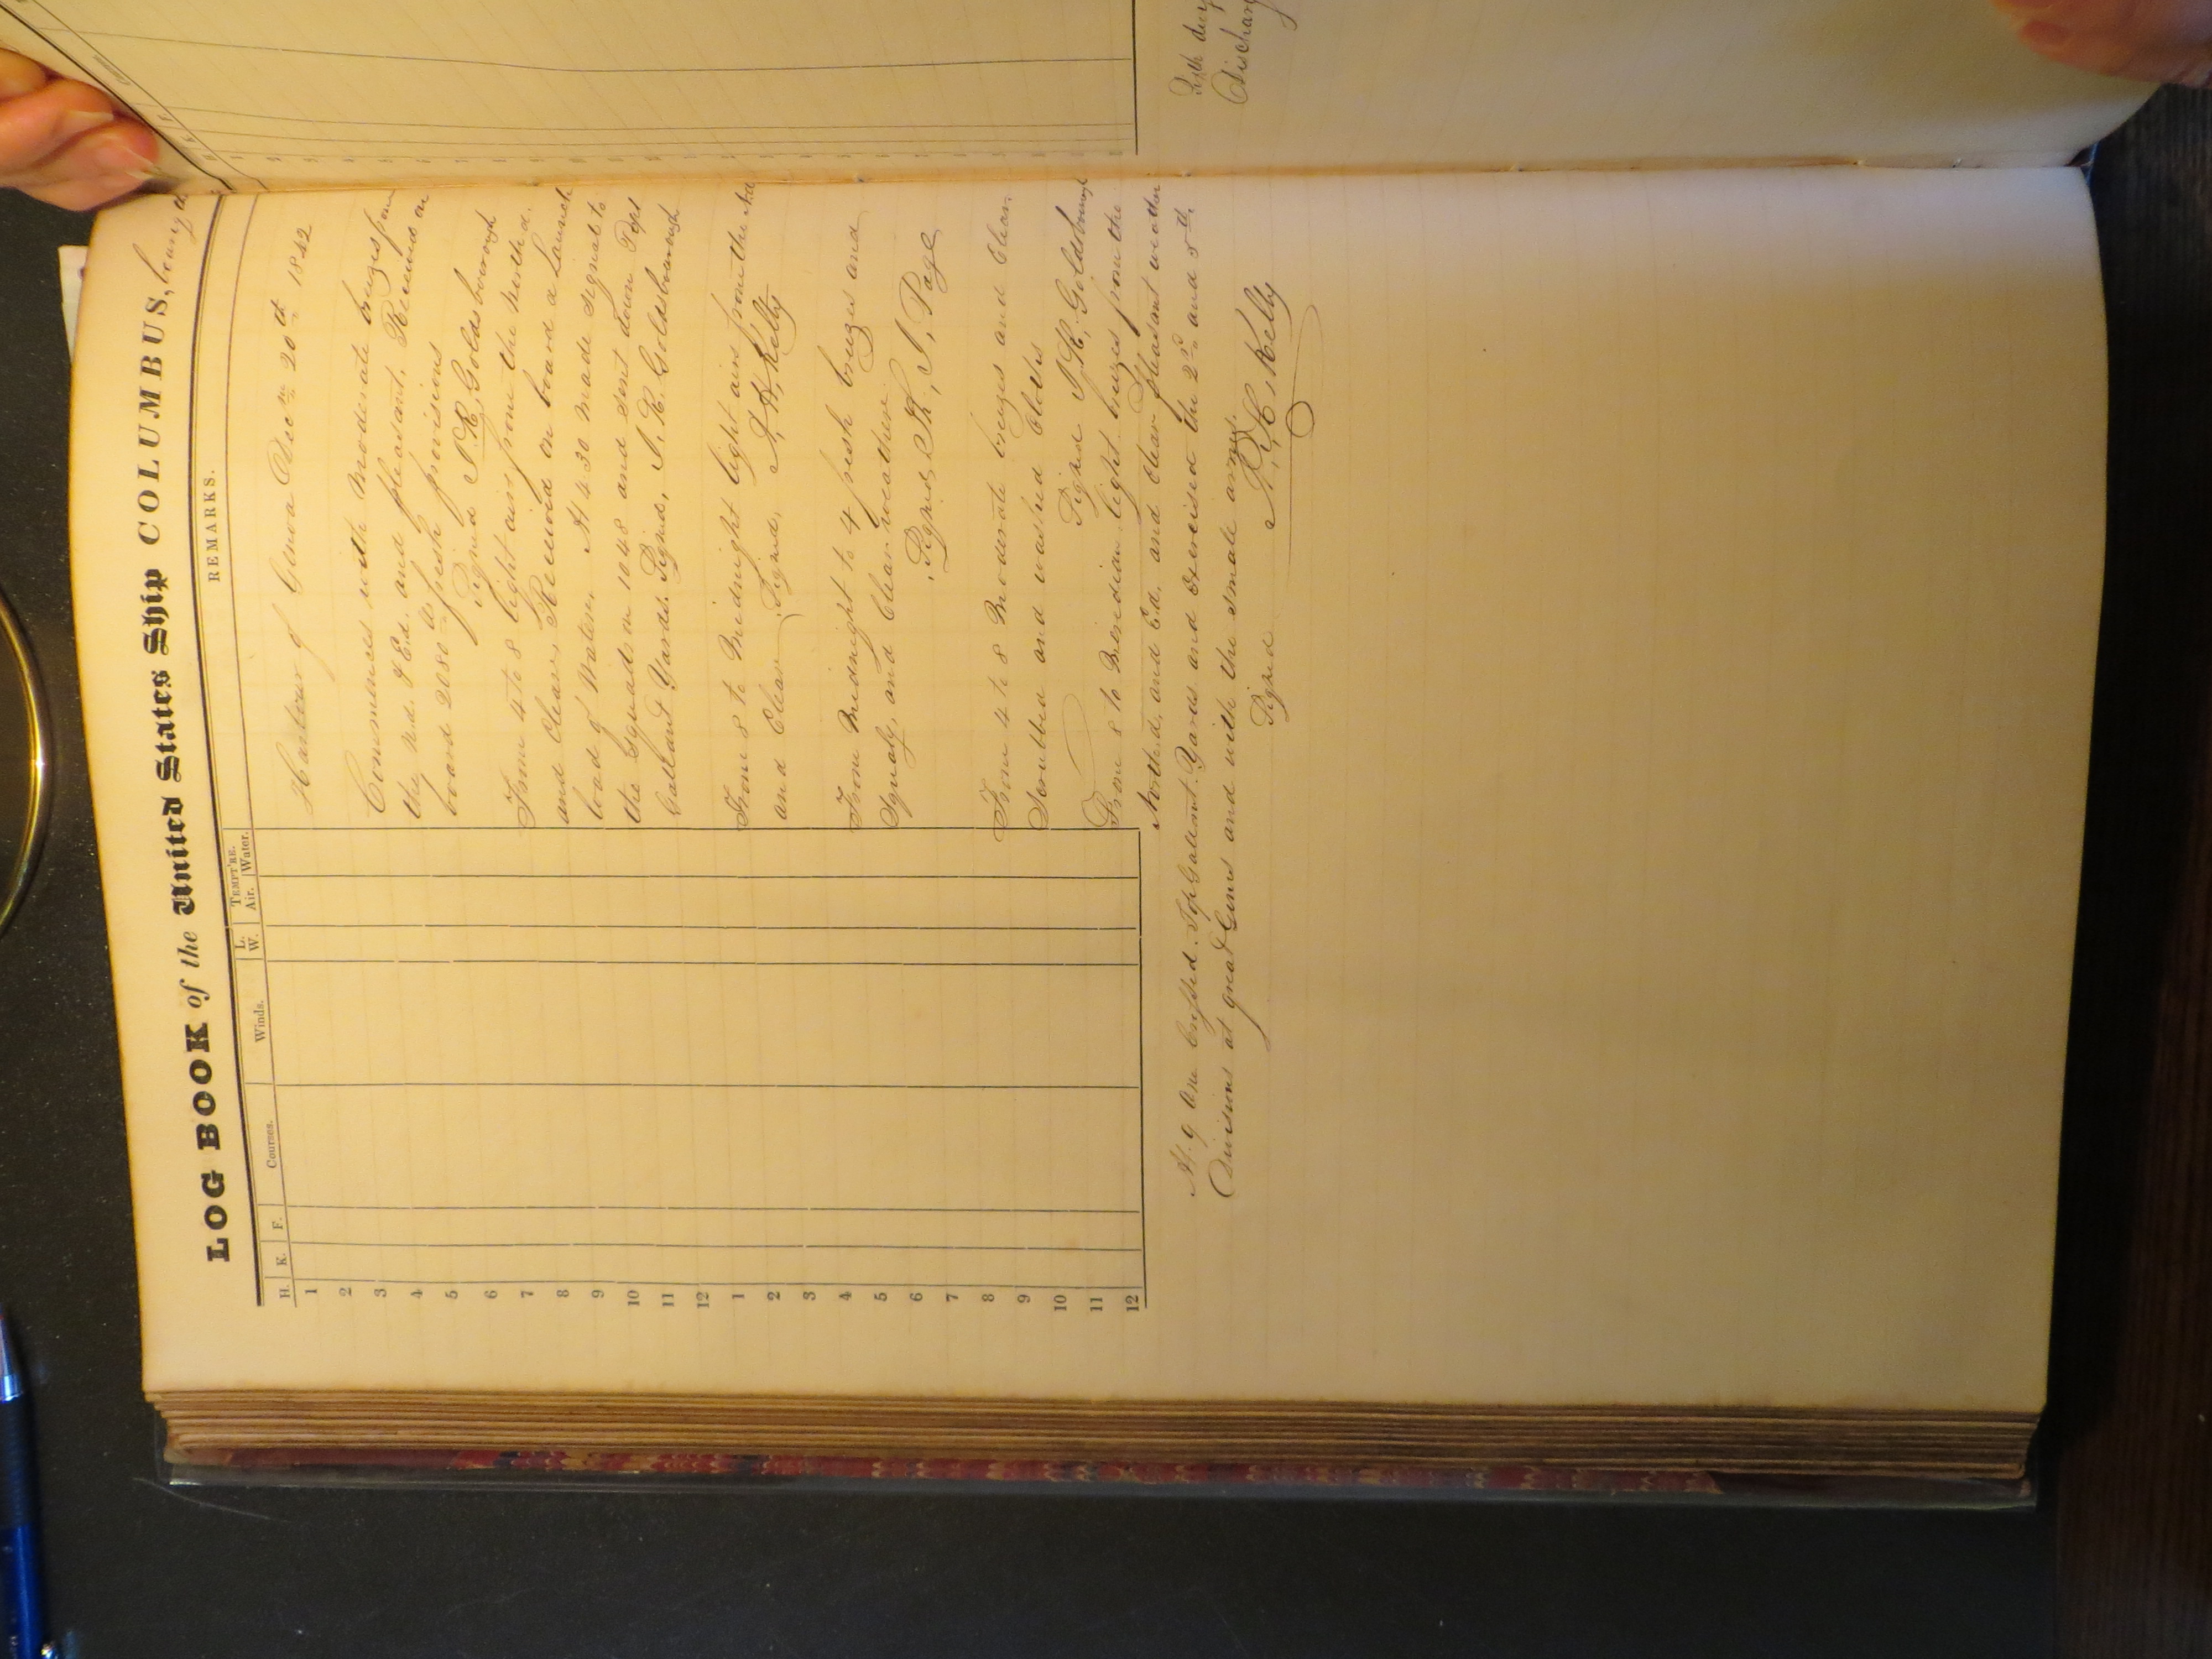 LOG BOOK of the United States Ship COLUMBUS,
H. K. F. Courses. Winds. L. W. TEMPT'RE. Air. Water. REMARKS.
Harbour of Genoa Decm. 20th 1842
1
2
3
4
5
6
7
8
9
10
11
12
1
2
3
4
5
6
7
8
9
10
11
12
Commences with Moderate breezes from
the Nd. & Ed. and pleasant. Received on
board 2080 lbs fresh provisions
Signed J. R. Goldsborough
From 4 to 8 light airs from the North'd.
and Clear, Received on board a Launch
load of Water. At 4 30 Made signal to
the Squadron 1048 and sent down Top
Gallant Yards. Signed, J. R. Goldsborough
From 8 to Midnight light airs from the Nd
and Clear Signed, A. H. Kelly
From Midnight to 4 fresh breezes and
Squaly, and Clear weather
Signed, Th. J. Page
From 4 to 8 Moderate breezes and Clear.
Scrubbed and washed Clothes
Signed J. R. Goldsborough
From 8 to Meridian light breezes from the
North'd. and Ed. and Clear pleasant weather
At 9 Crossed Top Gallant Yards and Exercised the 2d and 5th
Divisions at great Guns and with the small arms.
Signed A. H. Kelly
Discharg